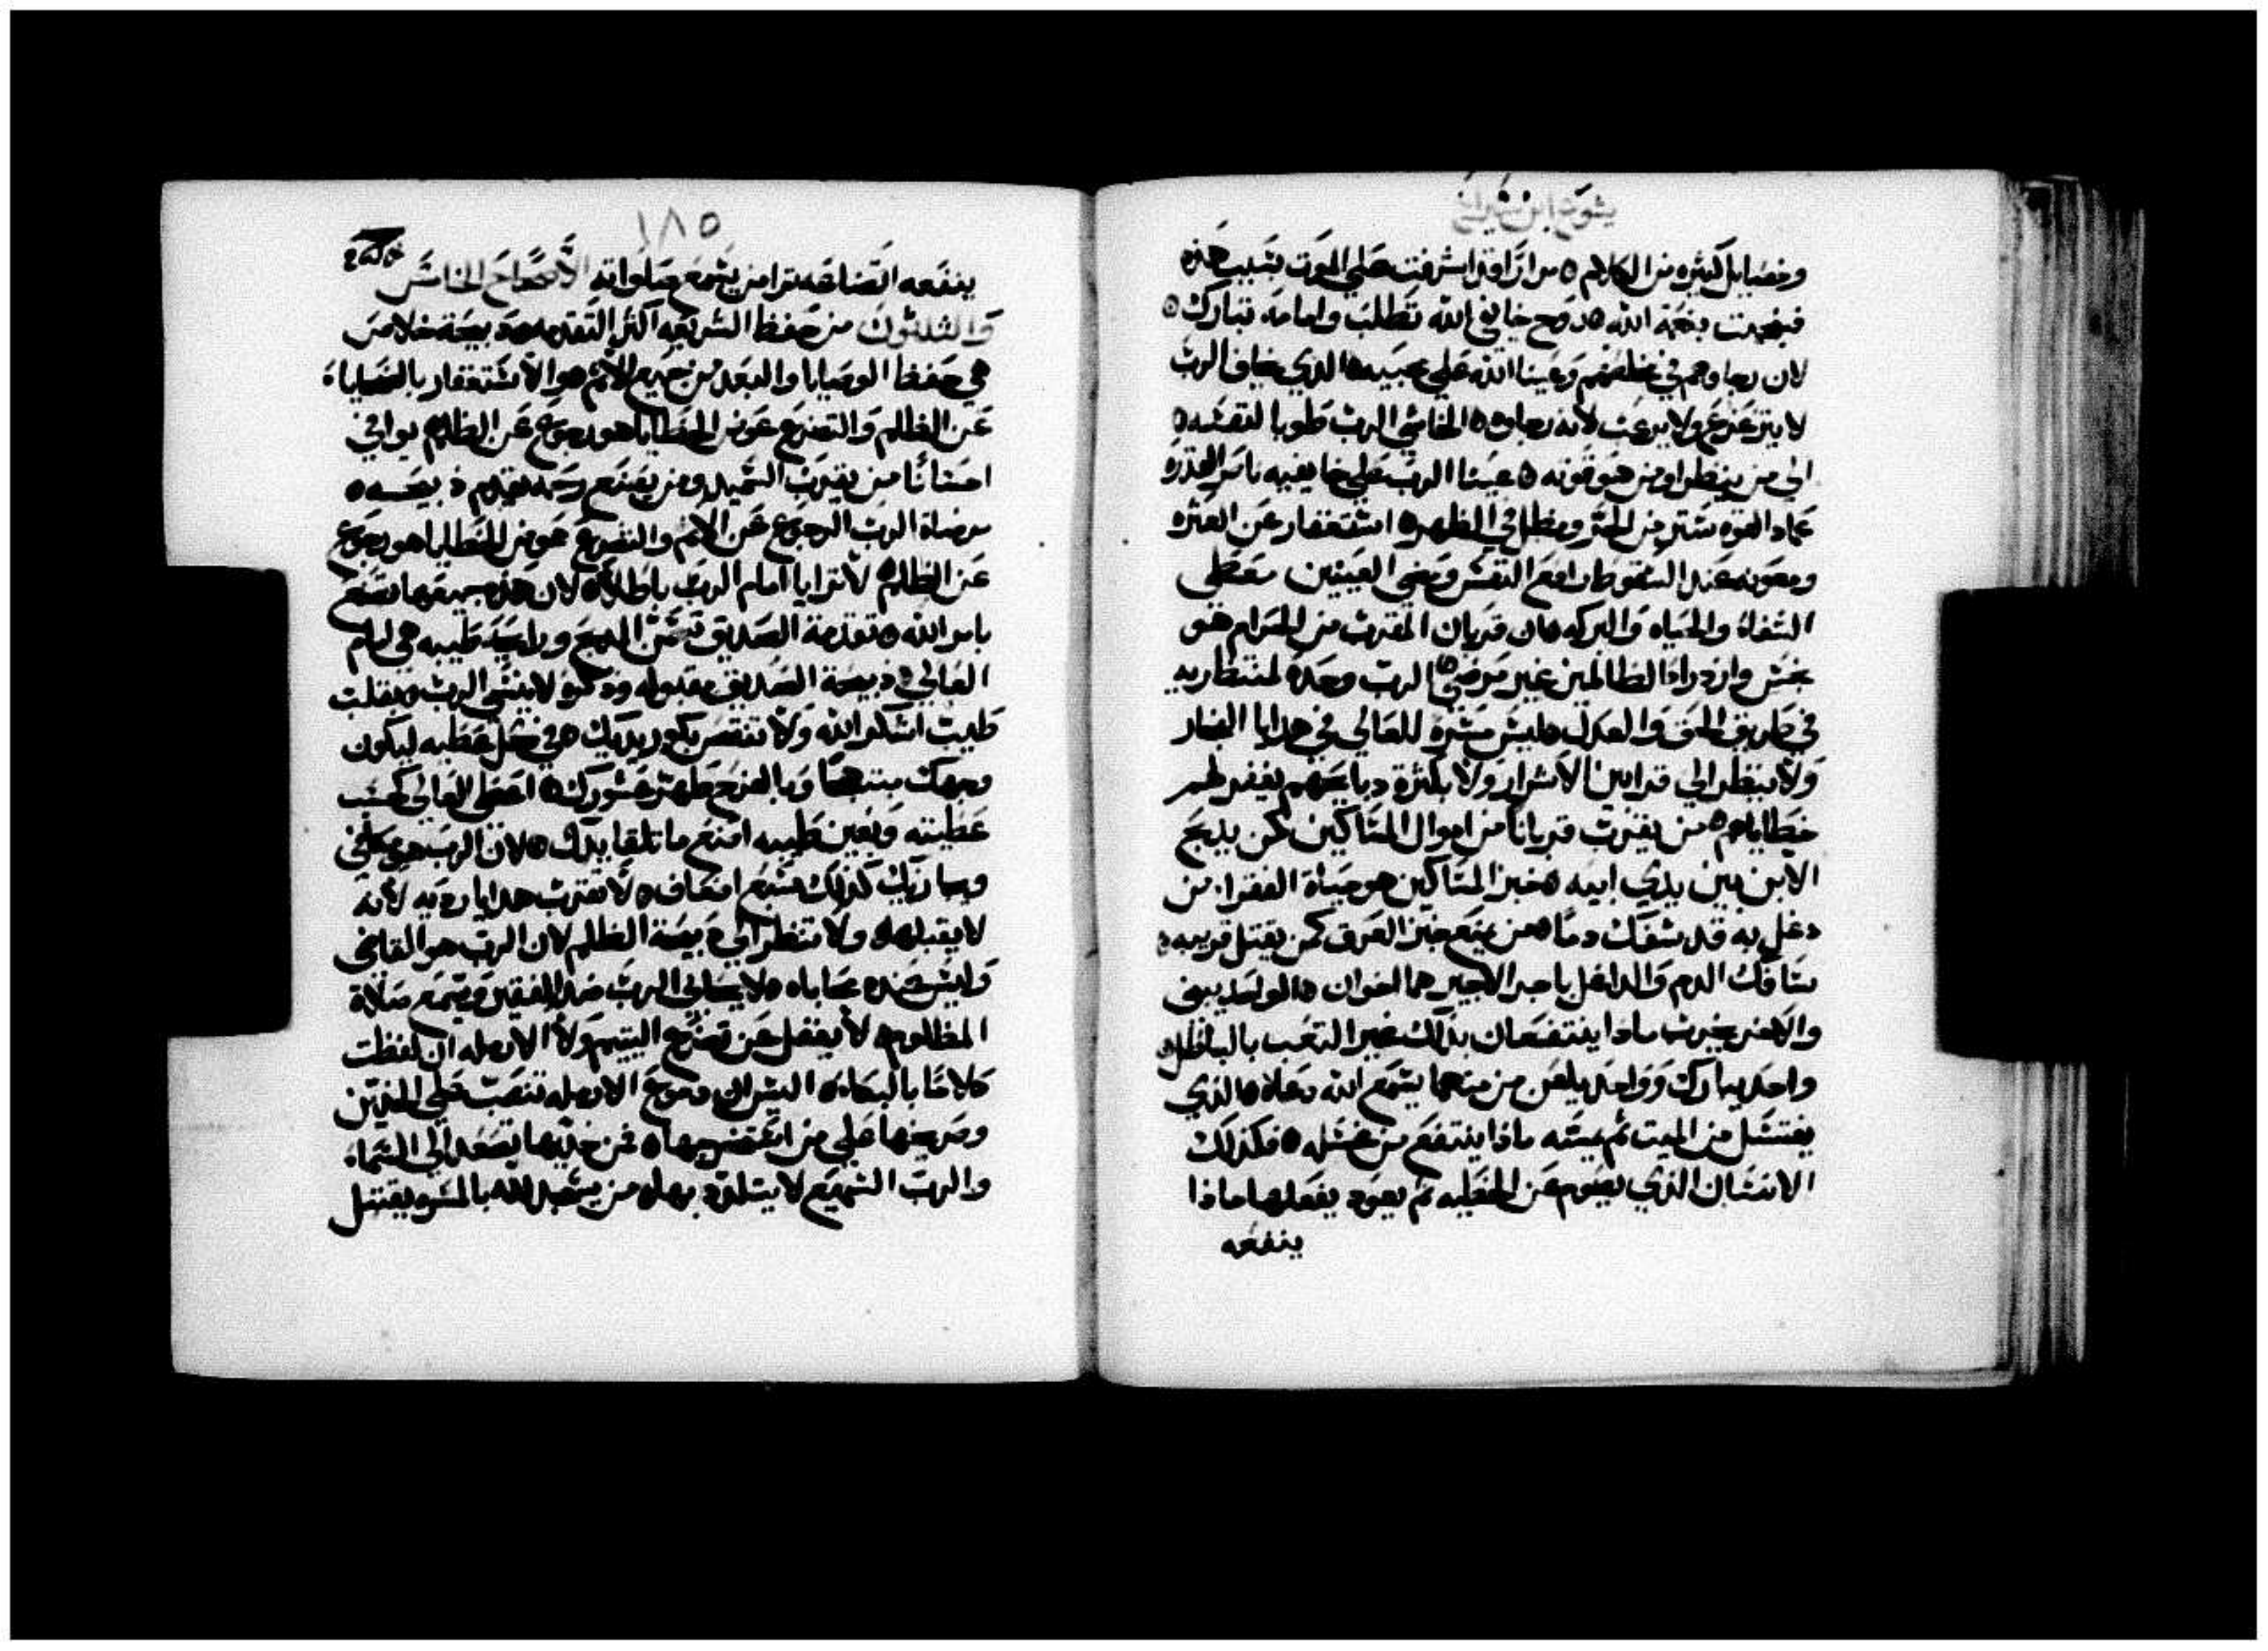 يشوع ابن سيراخ
وخصايل كثيره من الكلام ٥ مرارًا قد اشرفت علي الموت بسبب هذه
فنجيت بنعمة الله ٥ روح خايفي الله تطلب وامامه تبارك ٥
لان رجاوهم في مخلصهم وعينا الله علي محبيه ٥ الذي يخاف الرب
لا يتزعزع ولا يرعب لانه رجاوه ٥ الخاشي الرب طوبا لنفسه ٥
الي من ينظر او من هو قوته ٥ عينا الرب علي خايفيه ناصر القدره
عماد القوه ستر من الحر ومظل في الظهر ٥ استغفار عن العثره
ومعونه عند السقوط رافع النفس ومضي العينين معطي
الشفاء والحياه والبركه ٥ ان قربان المقرب من الحرام هو
نجس وازدراء الظالمين غير مرضي ٥ الرب وحده لمنتظريه
في طريق الحق والعدل ٥ ليس مسره للعالي في هدايا الفجار
ولا ينظر الي قرابين الاشرار ولا بكثرة ذبايحهم يغفر لهم
خطاياهم ٥ من يقرب قربانا من اموال المساكين كمن يذبح
الابن بين يدي ابيه ٥ خبز المساكين هو حياة الفقرا من
دغل به قد سفك دما ٥ من يمنع خبز العرق كمن يقتل قريبه ٥
سافك الدم والداغل باجر الاجير هما اخوان ٥ الواحد يبني
والاخر يخرب ماذا ينتفعان بذلك غير التعب بالباطل ٥
واحد يبارك وواحد يلعن من منهما يسمع الله دعاه ٥ الذي
يغتسل من الميت ثم يمسه ماذا ينتفع من غسله ٥ فكذلك
الانسان الذي يصوم عن الخطيه ثم يعود يفعلها ماذا
ينفعه
١٨٥
ينفعه اتضاعه ترا من يسمع صلواته الاصحاح الخامس
والثلثون من حفظ الشريعه اكثر التقدمه ٥ ذبيحة خلاص
هي حفظ الوصايا والبعد من جميع الاثم هو الاستغفار بالضحايا
عن الظلم والتضرع عوض الخطايا هو رجوع عن الظلم يوافي
احسانًا من يقرب السميد ومن يصنع رحمه يقدم ذبيحه ٥
مرضاة الرب الرجوع عن الاثم والتضرع عوض الخطايا هو رجوع
عن الظلم ٥ لا ترايا امام الرب باطلا ٥ لان هذه جميعها تصنع
بامر الله ٥ تقدمة الصديق تسمن المذبح ورايحه طيبه هي امام
العالي ٥ ذبيحة الصديق مقبوله وذكره لا ينسي الرب ٥ بقلب
طيب اشكر الله ولا تنقص بكور يديك ٥ في كل عطيه ليكون
وجهك مبتهجًا وبالفرح طهر عشورك ٥ اعط العالي كحسب
عطيته وبعين طيبه اصنع ما تلقا يدك ٥ لان الرب هو مكافي
ويجازيك كذلك سبع اضعاف ٥ لا تقرب هدايا رديه لانه
لا يقبلها ٥ ولا تنظر الي ذبيحة الظلم لان الرب هو القاضي
وليس عنده محاباه ٥ لا يحابي الرب ضد الفقير ويسمع صلاة
المظلوم ٥ لا يغفل عن تضرع اليتيم ولا الارمله ان لفظت
كلامًا بالبكا ٥ اليس ان دموع الارمله تنصب علي الخدين
وصريخها علي من اخرجها ٥ فمن خديها تصعد الي السماء
والرب السميع لا يتلذذ بها ٥ من يتعبد لله بالمسره يقتبل